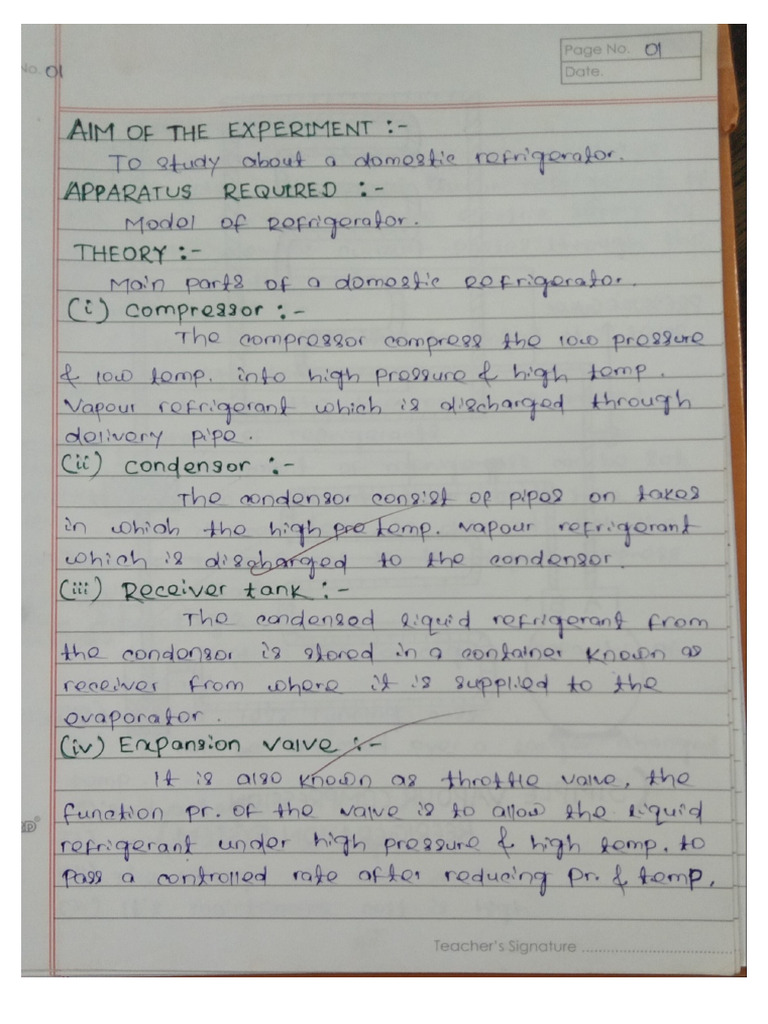 No. 01
Page No. 01
Date.
AIM OF THE EXPERIMENT :-
To study about a domestic refrigerator.
APPARATUS REQUIRED :-
Model of Refrigerator.
THEORY :-
Main parts of a domestic Refrigerator.
(i) Compressor :-
The compressor compress the low pressure
& low temp. into high pressure & high temp.
Vapour refrigerant which is discharged through
delivery pipe.
(ii) Condensor :-
The condensor consist of pipes on takes
in which the high pre temp. vapour refrigerant
which is discharged to the condensor.
(iii) Receiver tank :-
The condensed liquid refrigerant from
the condensor is stored in a container known as
receiver from where it is supplied to the
evaporator.
(iv) Expansion valve :-
It is also known as throttle valve, the
function pr. of the valve is to allow the liquid
refrigerant under high pressure & high temp. to
pass a controlled rate after reducing pr. & temp.
Teacher's Signature